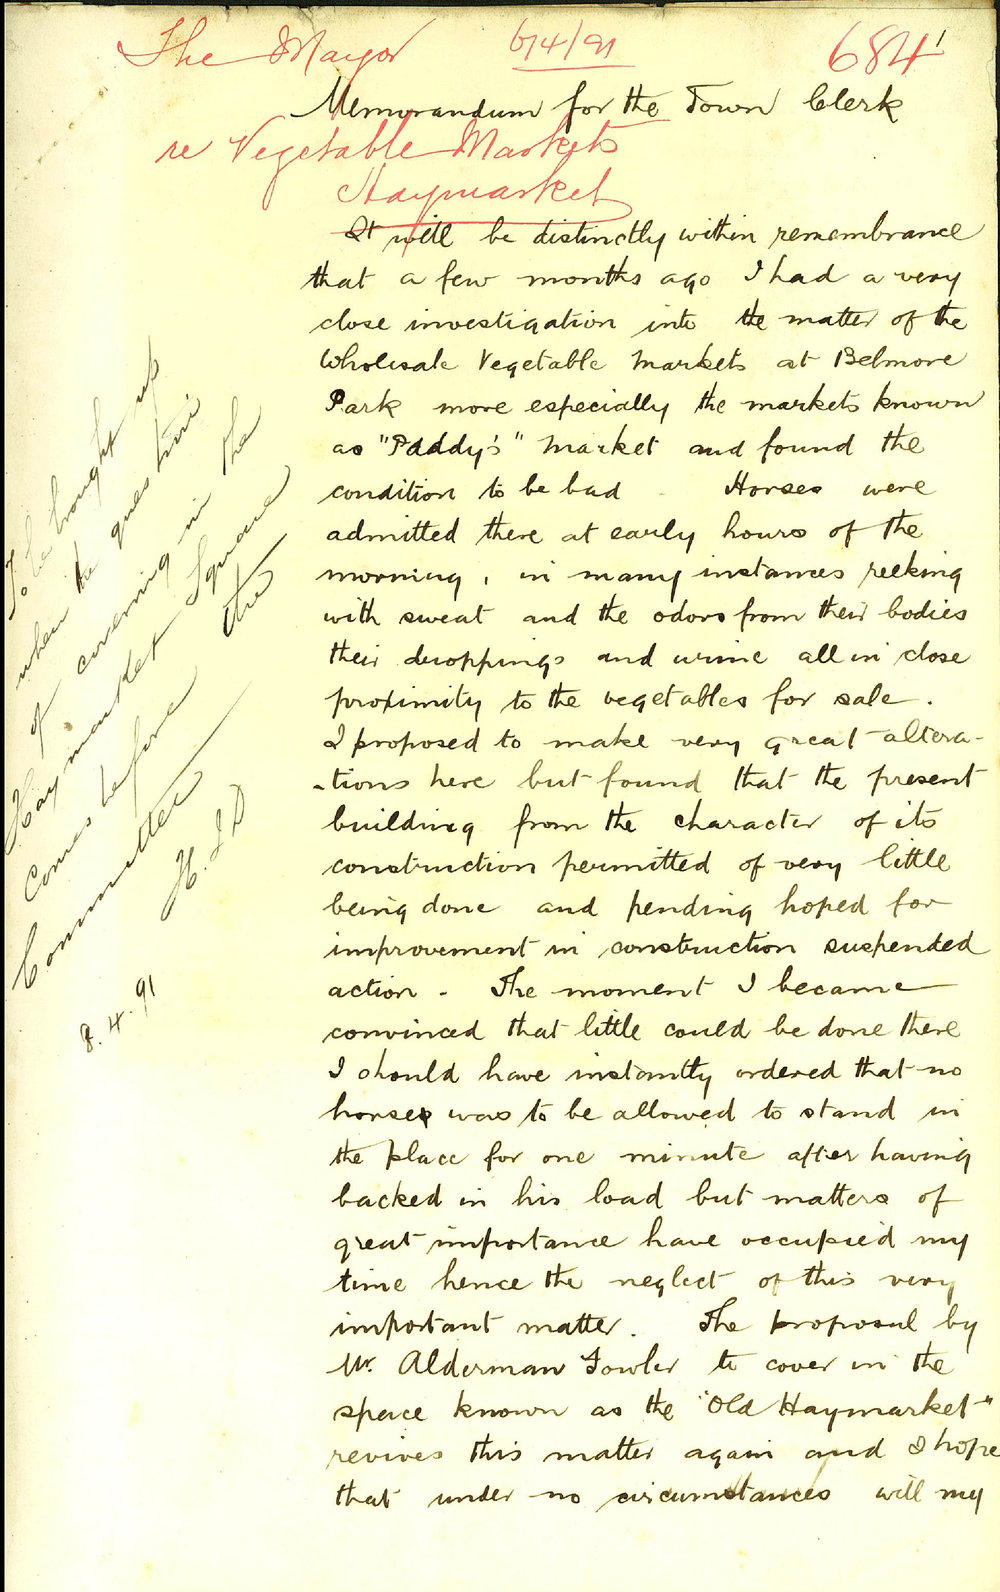 The Mayor 6/4/91 684
Memorandum for the Town Clerk
re Vegetable Markets
Haymarket
It will be distinctly within remembrance
that a few months ago I had a very
close investigation into the matter of the
Wholesale Vegetable Markets at Belmore
Park more especially the markets known
as "Paddy's" Market and found the
condition to be bad. Horses were
admitted there at early hours of the
morning, in many instances reeking
with sweat and the odors from their bodies
their droppings and urine all in close
proximity to the vegetables for sale.
I proposed to make very great altera-
-tions here but found that the present
building from the character of its
construction permitted of very little
being done and pending hoped for
improvement in construction suspended
action - The moment I became
convinced that little could be done there
I should have instantly ordered that no
horses was to be allowed to stand in
the place for one minute after having
backed in his load but matters of
great importance have occupied my
time hence the neglect of this very
important matter. The proposal by
Mr. Alderman Fowler to cover in the
space known as the "Old Haymarket"
revives this matter again and I hope
that under no circumstances will my
To be brought up
when the question
of covering in the
Haymarket Square
comes before the
Committee
H. J D
8.4.91